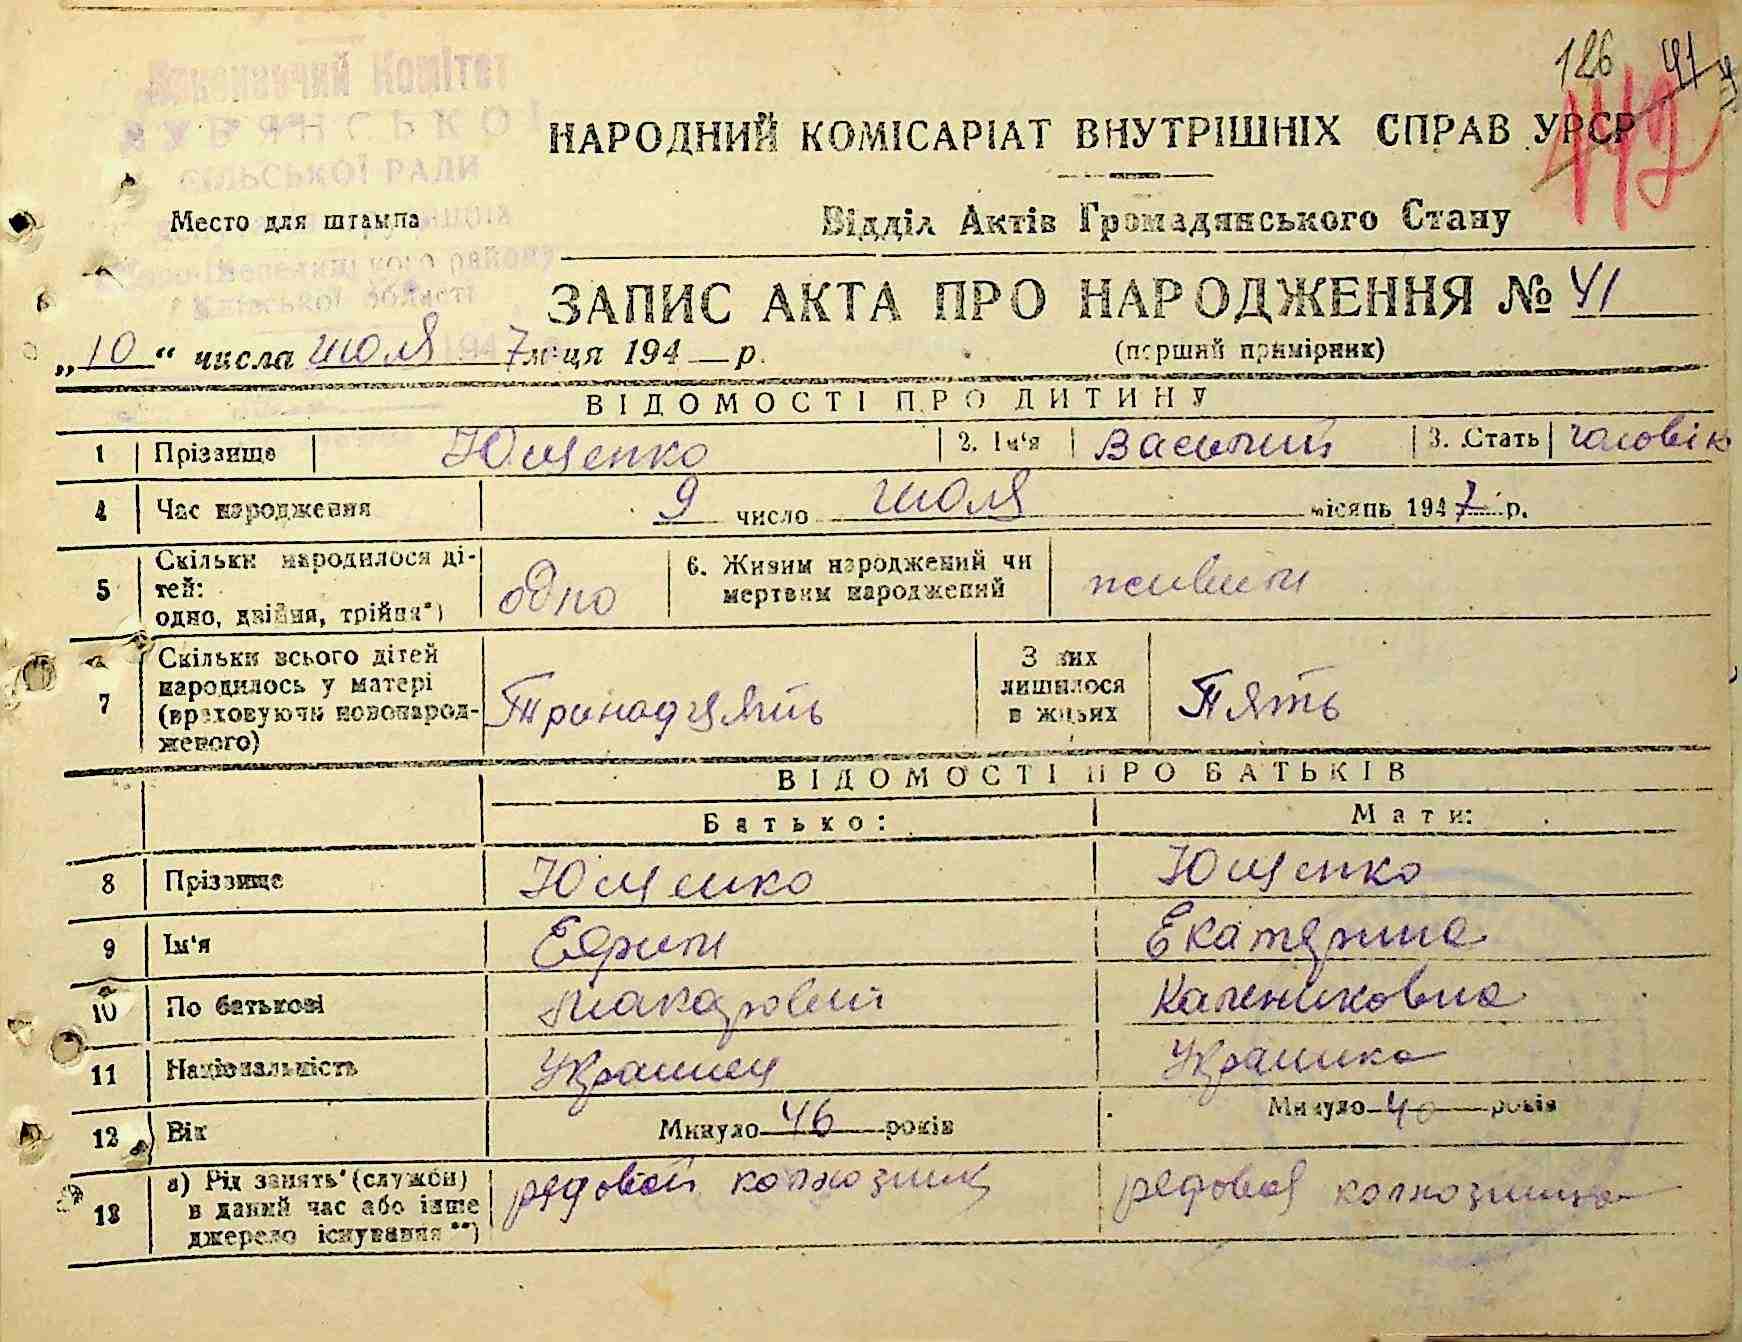 Виконавчий Комітет
ЛУБ'ЯНСЬКОЇ
СІЛЬСЬКОЇ РАДИ
району
Київської області
126 41
442
НАРОДНИЙ КОМІСАРІАТ ВНУТРІШНІХ СПРАВ УРСР
Место для штампа
Відділ Актів Громадянського Стану
ЗАПИС АКТА ПРО НАРОДЖЕННЯ № 41
„10“ числа июля м-ця 194 7 р.
(перший примірник)
ВІДОМОСТІ ПРО ДИТИНУ
1 Прізвище Ющенко 2. Ім'я Василий 3. Стать чоловік
4 Час народження 9 число июля місяць 1947 р.
5 Скільки народилося ді-
тей:
одно, двійня, трійня*) одно
6. Живим народжений чи
мертвим народжений живим
7 Скільки всього дітей
народилось у матері
(враховуючи новонарод-
женого) Тринадцять
З них
лишилося
в живих Пять
ВІДОМОСТІ ПРО БАТЬКІВ
Батько: Мати:
8 Прізвище Ющенко Ющенко
9 Ім'я Ефим Екатерина
10 По батькові Макарович Калениковна
11 Національність Украинец Украинка
12 Вік Минуло 46 років Минуло 40 років
13 а) Рід занять (служби)
в даний час або інше
джерело існування**) редовой колхозник редовая колхозница